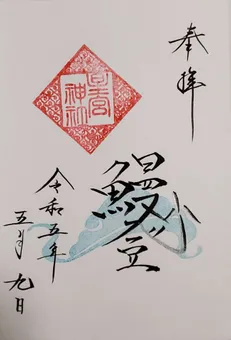 奉拝
星宮
神社
鰻
令和五年
五月九日